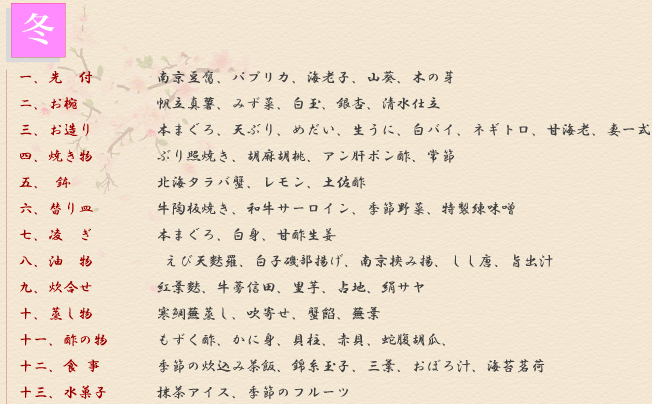 冬
一、先　付　南京豆腐、パプリカ、海老子、山葵、木の芽
二、お椀　帆立真薯、みず菜、白玉、銀杏、清水仕立
三、お造り　本まぐろ、天ぶり、めだい、生うに、白バイ、ネギトロ、甘海老、妻一式
四、焼き物　ぶり照焼き、胡麻胡桃、アン肝ポン酢、常節
五、　鉢　北海タラバ蟹、レモン、土佐酢
六、替り皿　牛陶板焼き、和牛サーロイン、季節野菜、特製練味噌
七、凌　ぎ　本まぐろ、白身、甘酢生姜
八、油　物　えび天麩羅、白子磯部揚げ、南京挟み揚、しし唐、旨出汁
九、炊合せ　紅葉麩、牛蒡信田、里芋、占地、絹サヤ
十、蒸し物　寒鯛蕪蒸し、吹寄せ、蟹餡、蕪葉
十一、酢の物　もずく酢、かに身、貝柱、赤貝、蛇腹胡瓜、
十二、食　事　季節の炊込み茶飯、錦糸玉子、三葉、おぼろ汁、海苔茗荷
十三、水菓子　抹茶アイス、季節のフルーツ